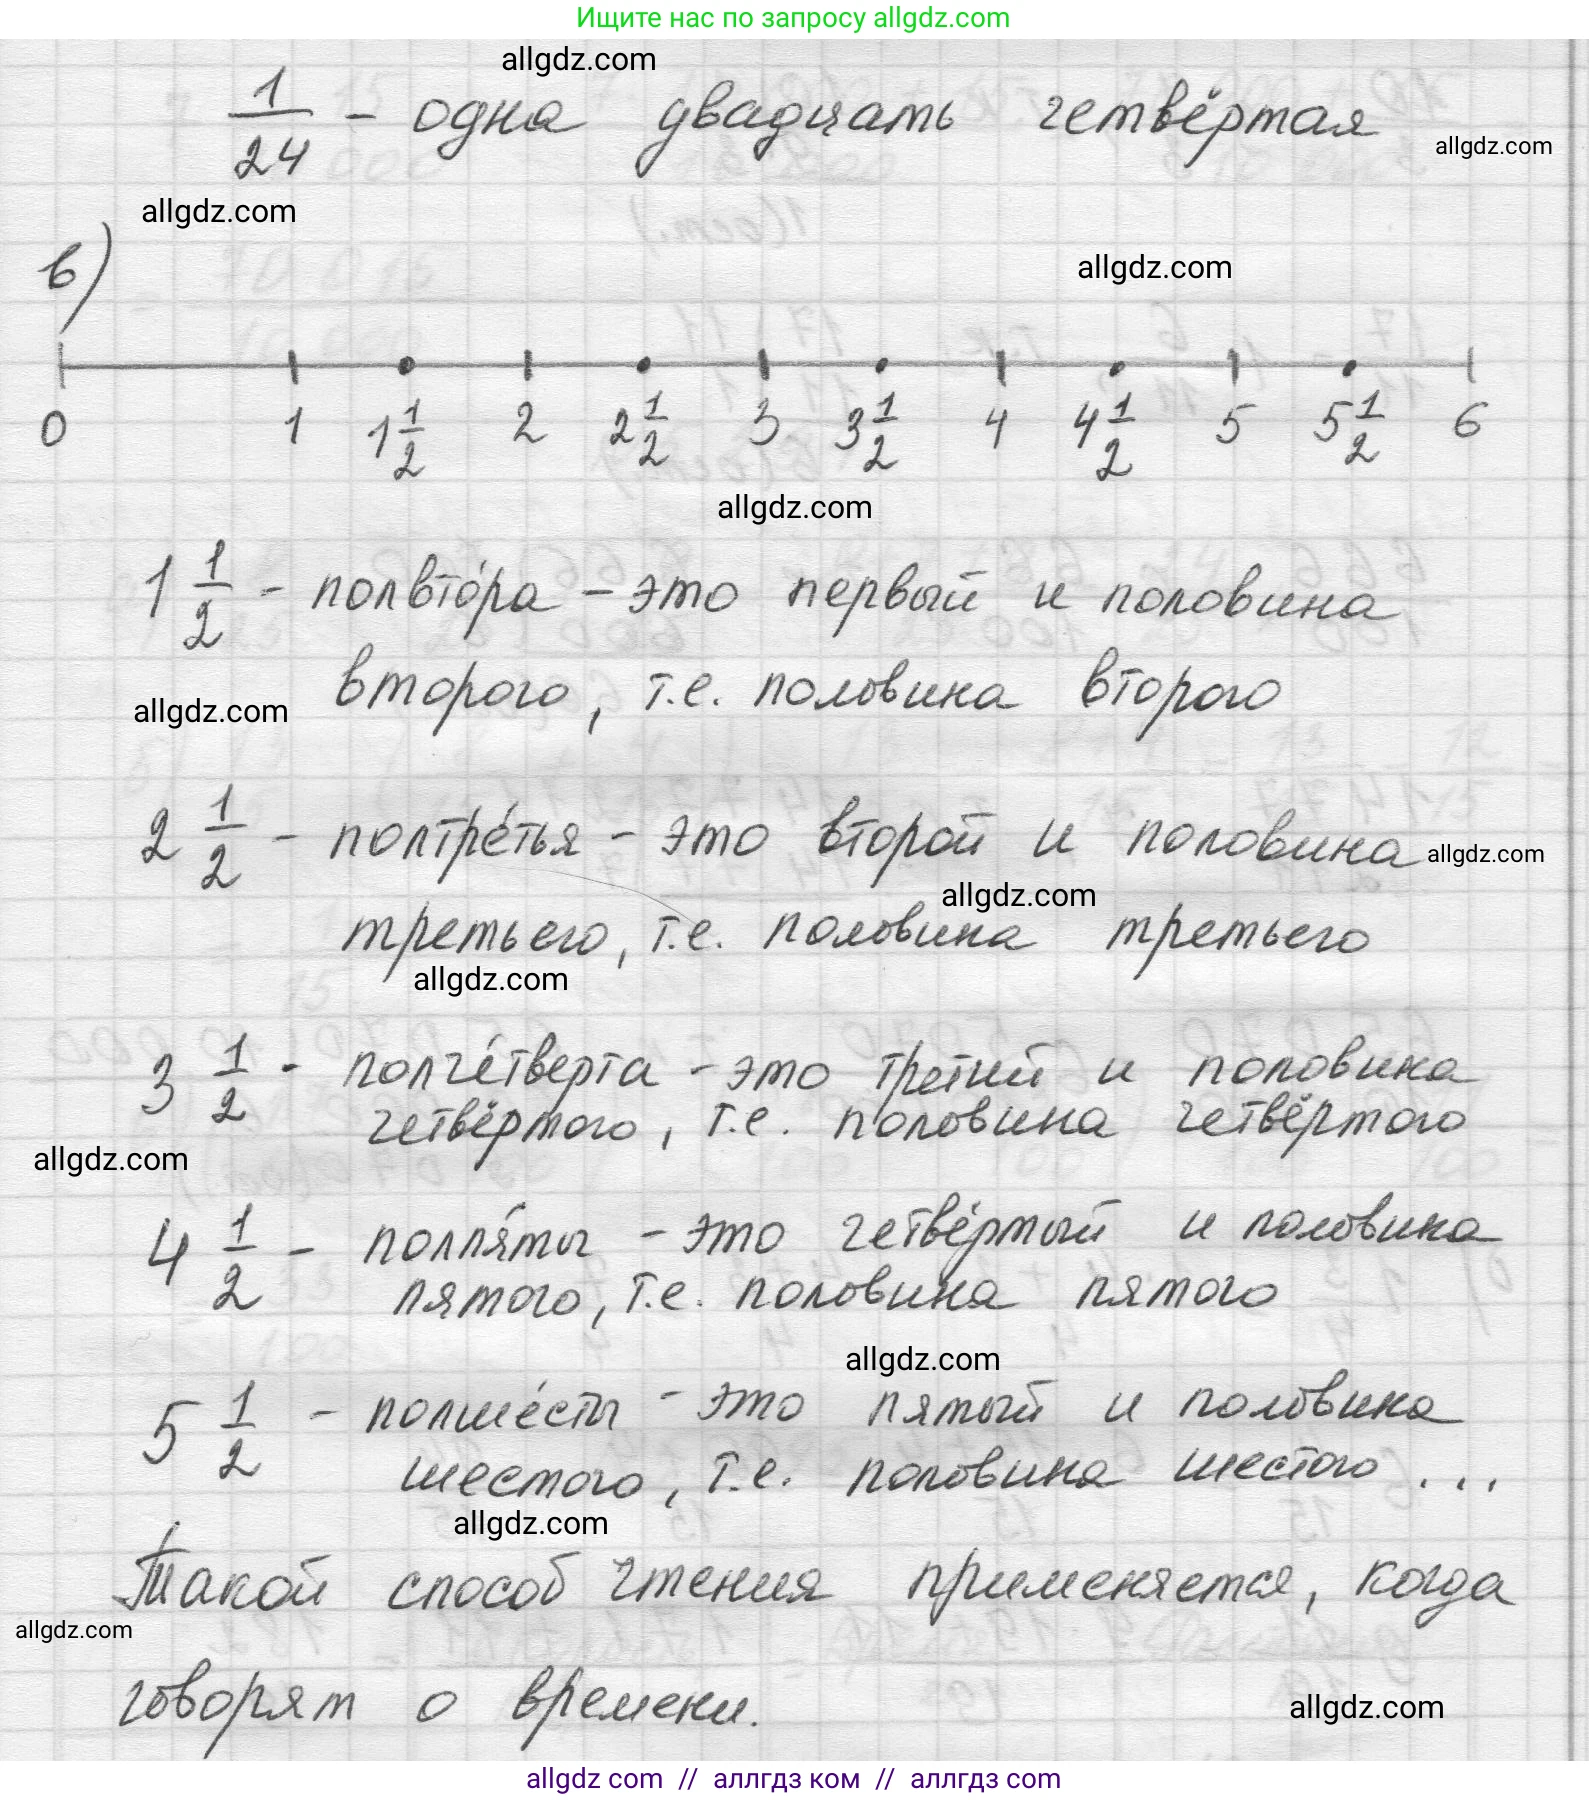 Ищите нас по запросу allgdz.com
allgdz.com
1/24 - одна двадцать четвёртая
allgdz.com
allgdz.com
в)
allgdz.com
0 1 1 1/2 2 2 1/2 3 3 1/2 4 4 1/2 5 5 1/2 6
allgdz.com
1 1/2 - полвто́ра - это первый и половина
второго, т.е. половина второго
allgdz.com
2 1/2 - полтре́тья - это второй и половина
allgdz.com
allgdz.com
третьего, т.е. половина третьего
allgdz.com
3 1/2 - полче́тверта - это третий и половина
четвёртого, т.е. половина четвёртого
allgdz.com
4 1/2 - полпя́ты - это четвёртый и половина
пятого, т.е. половина пятого
allgdz.com
5 1/2 - полше́сты - это пятый и половина
шестого, т.е. половина шестого ...
allgdz.com
Такой способ чтения применяется, когда
allgdz.com
говорят о времени.
allgdz.com
allgdz com // аллгдз ком // аллгдз com